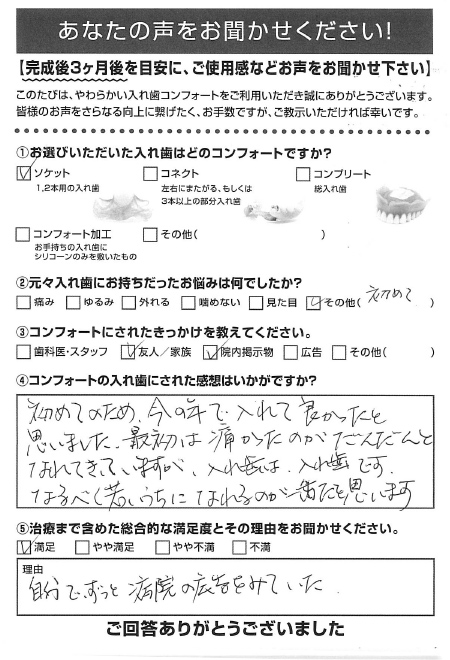 あなたの声をお聞かせください!
【完成後3ヶ月後を目安に、ご使用感などお声をお聞かせ下さい】
このたびは、やわらかい入れ歯コンフォートをご利用いただき誠にありがとうございます。
皆様のお声をさらなる向上に繋げたく、お手数ですが、ご教示いただければ幸いです。
①お選びいただいた入れ歯はどのコンフォートですか?
ソケット コネクト コンプリート
1,2本用の入れ歯 左右にまたがる、もしくは 総入れ歯
3本以上の部分入れ歯
コンフォート加工 その他( )
お手持ちの入れ歯に
シリコーンのみを敷いたもの
②元々入れ歯にお持ちだったお悩みは何でしたか?
痛み ゆるみ 外れる 噛めない 見た目 その他( 初めて )
③コンフォートにされたきっかけを教えてください。
歯科医・スタッフ 友人/家族 院内掲示物 広告 その他( )
④コンフォートの入れ歯にされた感想はいかがですか?
初めてのため、今の年で入れて良かったと
思いました。最初は痛かったのがだんだんと
なれてきていますが、入れ歯は、入れ歯です。
なるべく若いうちになれるのが だと思います
⑤治療まで含めた総合的な満足度とその理由をお聞かせください。
満足 やや満足 やや不満 不満
理由
自分でずっと病院の広告をみていた
ご回答ありがとうございました